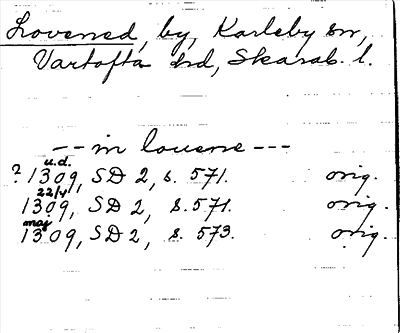 Lovened, by, Karleby sn,
Vartofta hd, Skarab. l.
-- in louene ---
u.d.
? 1309, SD 2, s. 571. orig.
22/4
1309, SD 2, s. 571. orig.
maj
1309, SD 2, s. 573. orig.